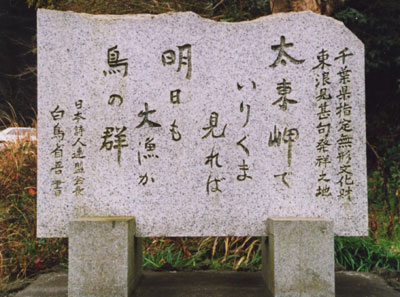 千葉県指定無形文化財
東浪見甚句発祥之地
太東岬で
いりくま
見れば
明日も
大漁か
鳥の群
日本詩人連盟会長
白鳥省吾書